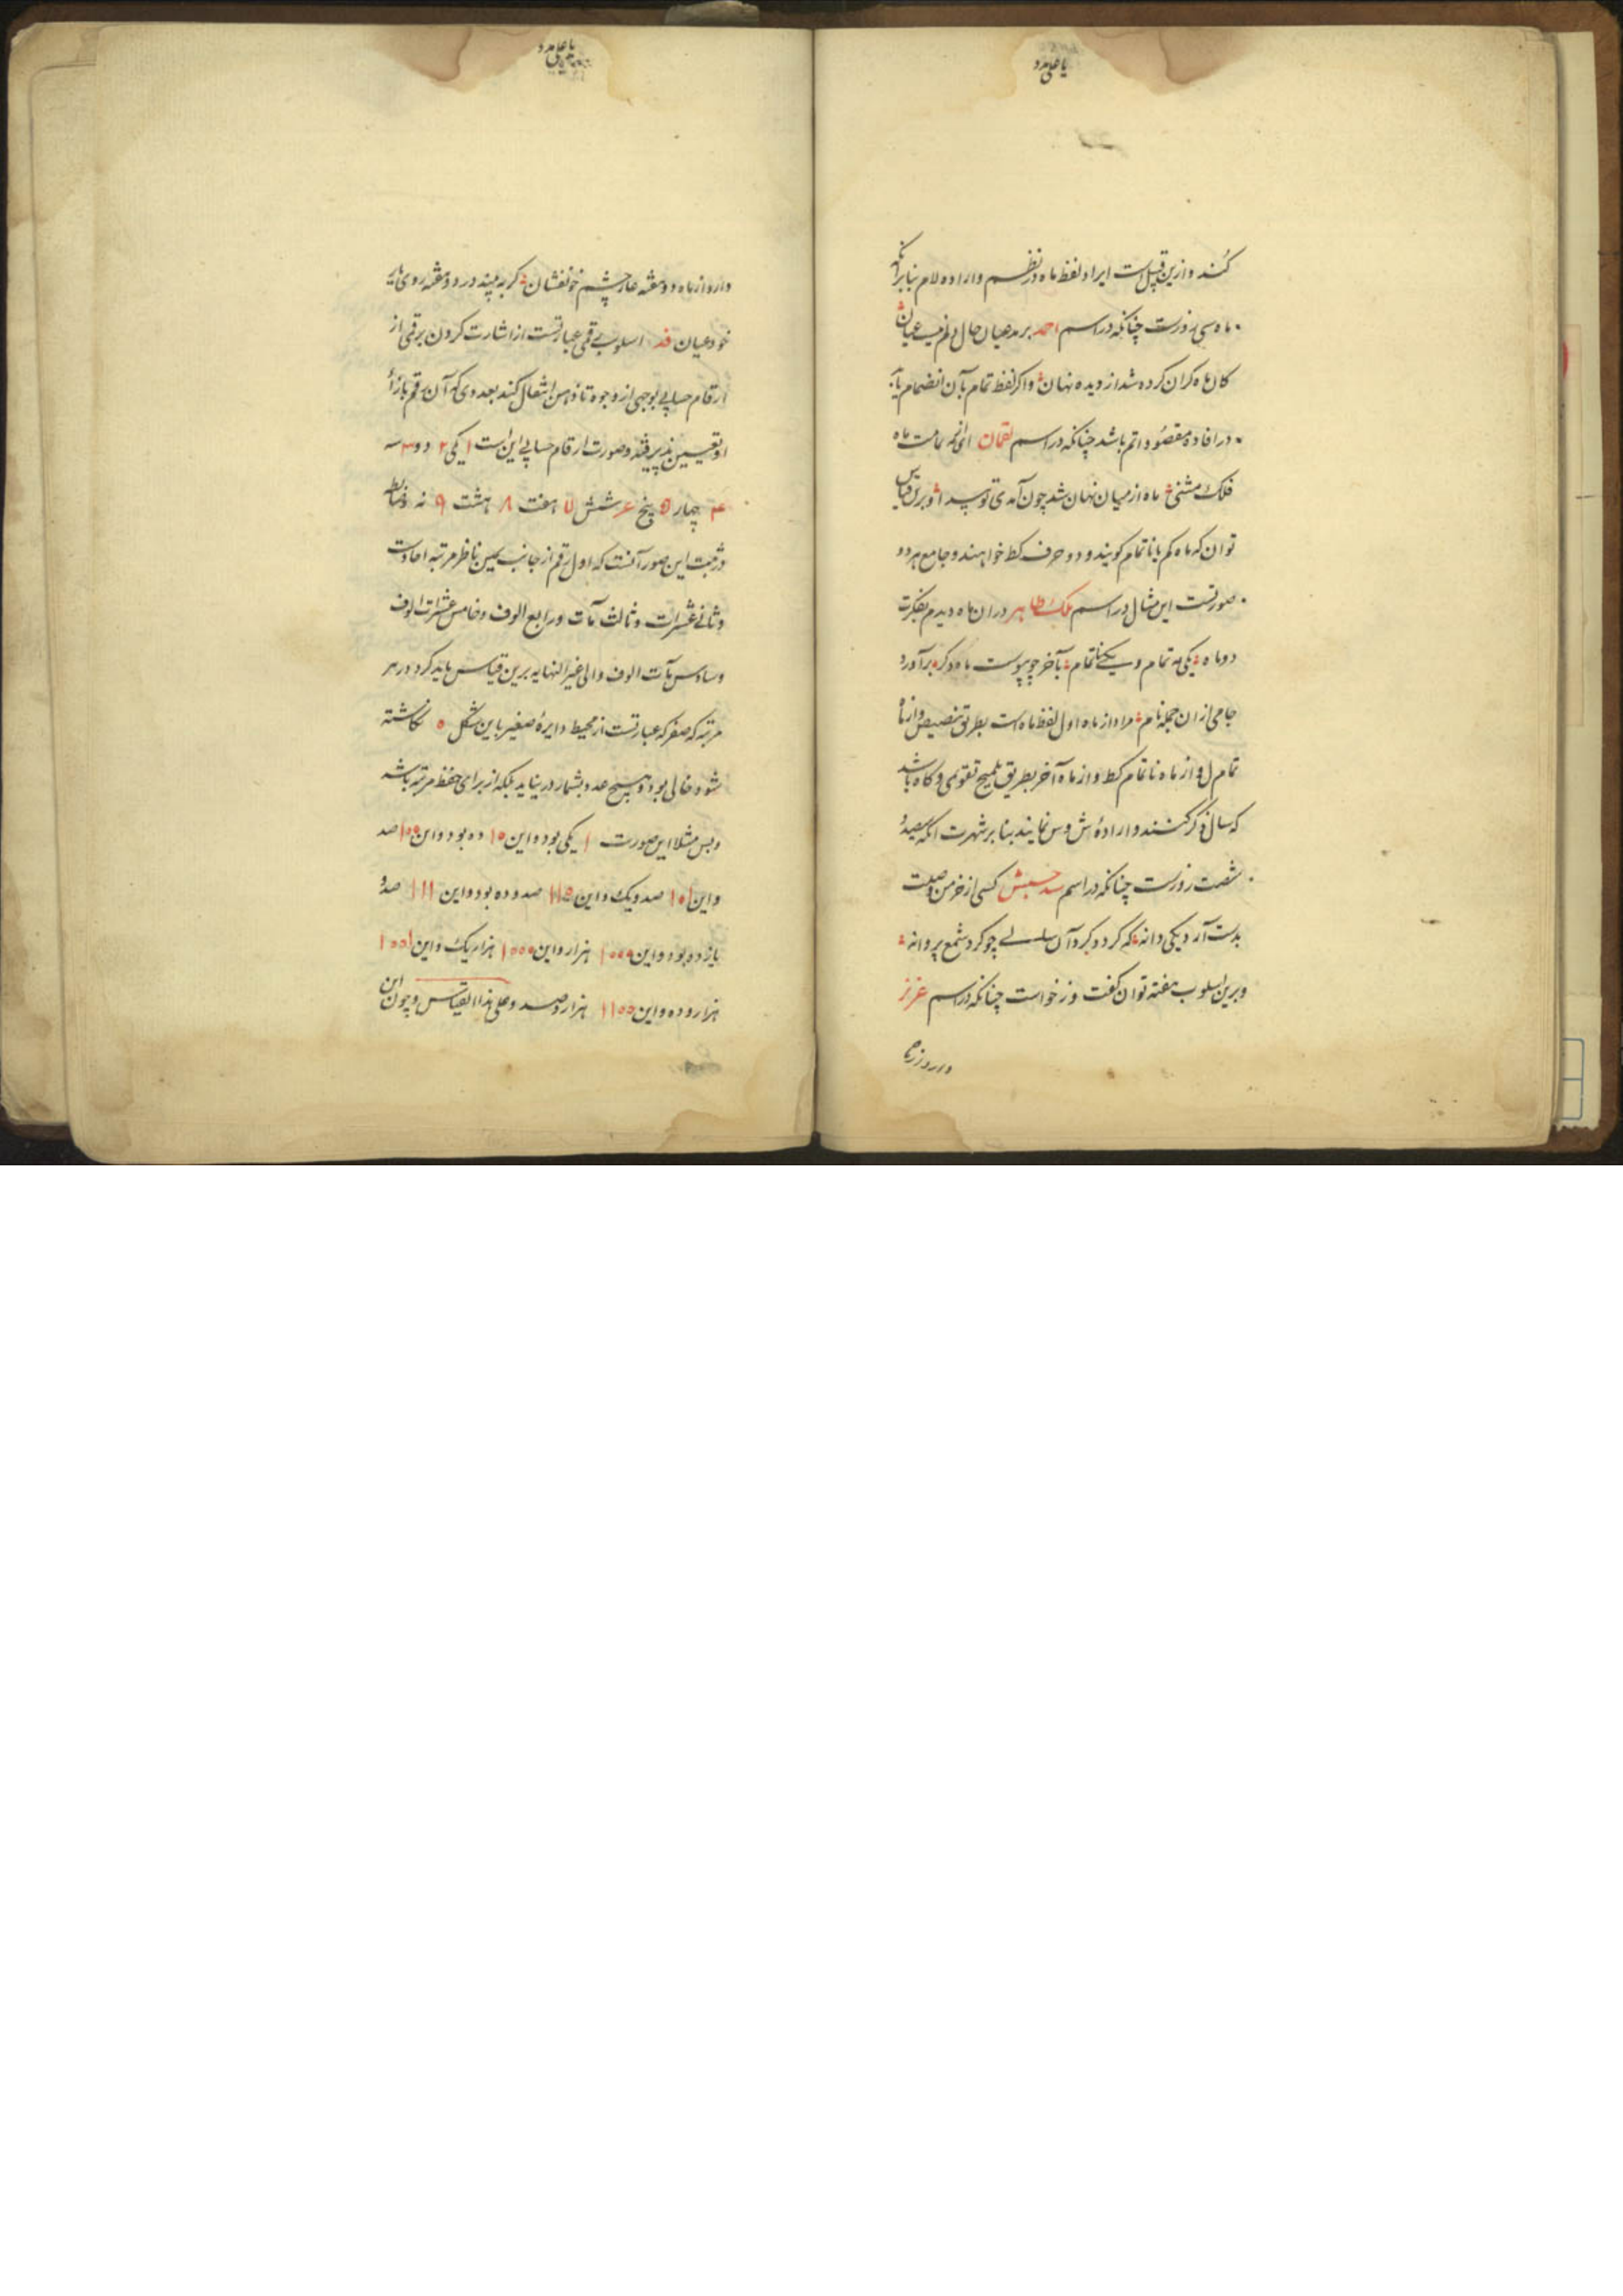 یا علی مدد
کنند و ازین قبیل است ایراد لفظ ماه در نظم و اراده لام بنا بر آنکه
ماه سی روزست چنانکه در اسم احمد بر مدعیان حال دلم نیست عیان
کان ماه کران کرده شد از دیده نهان و اکر لفظ تمام بآن انضمام یابد
در افاده مقصود اتم باشد چنانکه در اسم لقمان ای تمامت ماه
فلک مشتی ماه از میان نهان شد چون آمدی تو پیدا و برین قیاس
توان که ماه کم یا ناتمام کویند و دو حرف کط خواهند و جامع هر دو
صورتست این مثال در اسم ملک طاهر در ان ماه دیدم بفکرت
دو ماه یکی مه تمام و یکی ناتمام بآخر چو پیوست ماه دکر برآورد
جامی از ان جمله نام مراد از ماه اول لفظ ماه است بطریق تنصیص و از ماه
تمام ل و از ماه ناتمام کط و از ماه آخر بطریق تلمیح تقویمی و کاه باشد
که سال ذکر کنند و اراده ش و س نمایند بنا بر شهرت آنکه سیصد و
شصت روزست چنانکه در اسم کسی از خرمن وصلت
بدست آرد یکی دانه که کردد کرد آن سالی چو کرد شمع پروانه
و برین اسلوب هفته توان کفت و ز خواست چنانکه در اسم عزیز
یا علی مدد
دارد از ماه دو هفته هار چشم خونفشان کر به بیند در دو هفته روی ماه
خود عیان اسلوب رقمی عبارتست از اشارت کردن برقمی از
ارقام حسابی بوجهی از وجوه تا ذهن انتقال کند بعددی که آن رقم بازاء
او تعیین پذیرفته و صورت ارقام حسابی این است ۱ یکی ۲ دو ۳ سه
۴ چهار ۵ پنج ۶ شش ۷ هفت ۸ هشت ۹ نه و ضابطه
در ثبت این صور آنست که اول رقم از جانب یمین ناظر مرتبه احادست
و ثانی عشرات و ثالث مآت و رابع الوف و خامس عشرات الوف
و سادس مآت الوف و الی غیر النهایه برین قیاس باید کرد و در هر
مرتبه که صفر که عبارتست از محیط دایره صغیر باین شکل ه نکاشته
شود خالی بود و هیچ عدد بشمار در نیاید بلکه از برای حفظ مرتبه باشد
و بس مثلا این صورت ۱ یکی بود و این ۱۰ ده بود و این ۱۰۰ صد
و این ۱۰۱ صد و یک و این ۱۱۰ صد و ده بود و این ۱۱۱ صد و
یازده بود و این ۱۰۰۰ هزار و این ۱۰۰۰ هزار یک و این ۱۰۰۱
هزار و ده و این ۱۱۰۰ هزار و صد و علی هذا القیاس و چون این